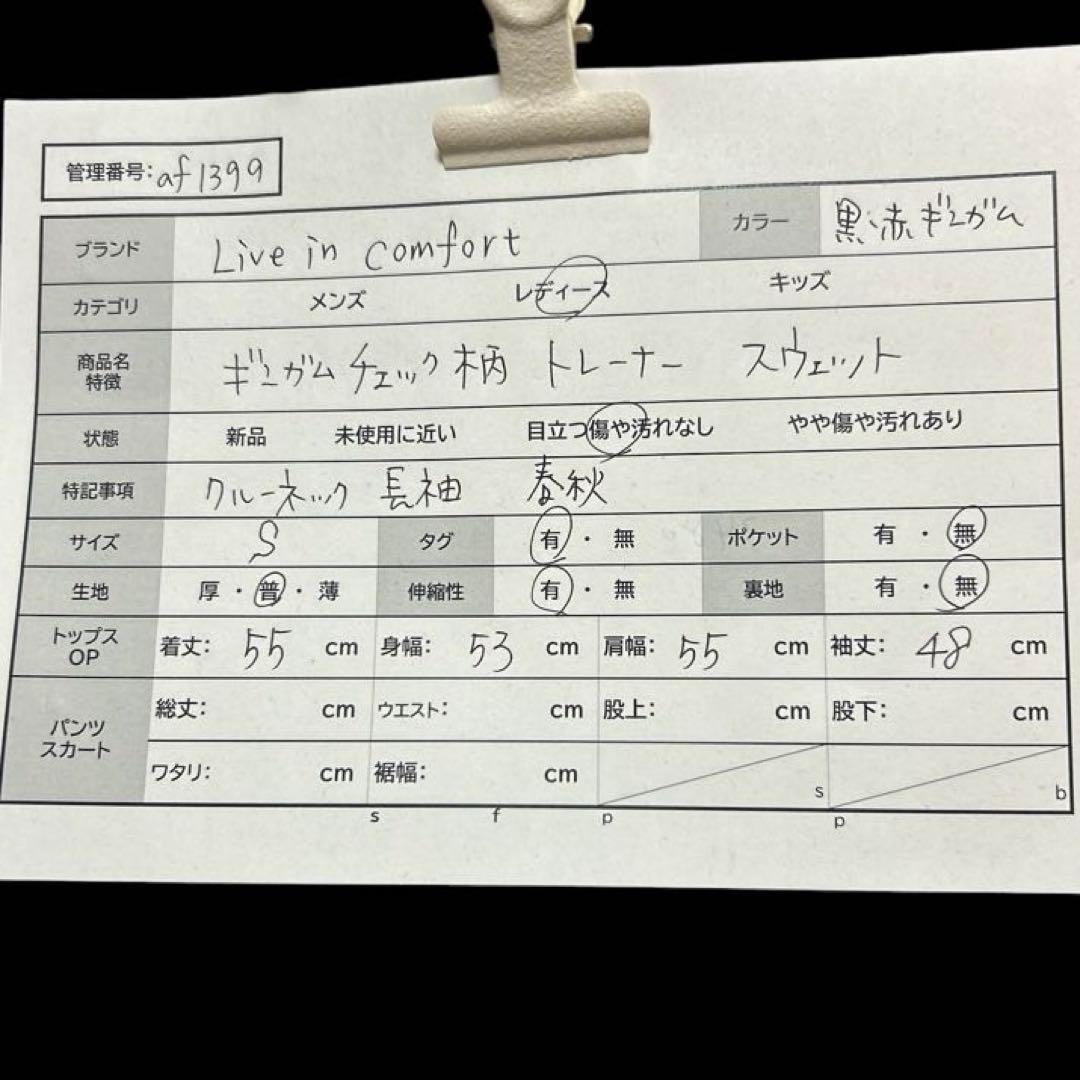 管理番号: af1399
ブランド Live in comfort カラー 黒・赤ギンガム
カテゴリ メンズ レディース キッズ
商品名 特徴 ギンガムチェック柄 トレーナー スウェット
状態 新品 未使用に近い 目立つ傷や汚れなし やや傷や汚れあり
特記事項 クルーネック 長袖 春秋
サイズ S タグ 有・無 ポケット 有・無
生地 厚・普・薄 伸縮性 有・無 裏地 有・無
トップス OP 着丈: 55 cm 身幅: 53 cm 肩幅: 55 cm 袖丈: 48 cm
パンツ スカート 総丈: cm ウエスト: cm 股上: cm 股下: cm
ワタリ: cm 裾幅: cm s b
s f p p